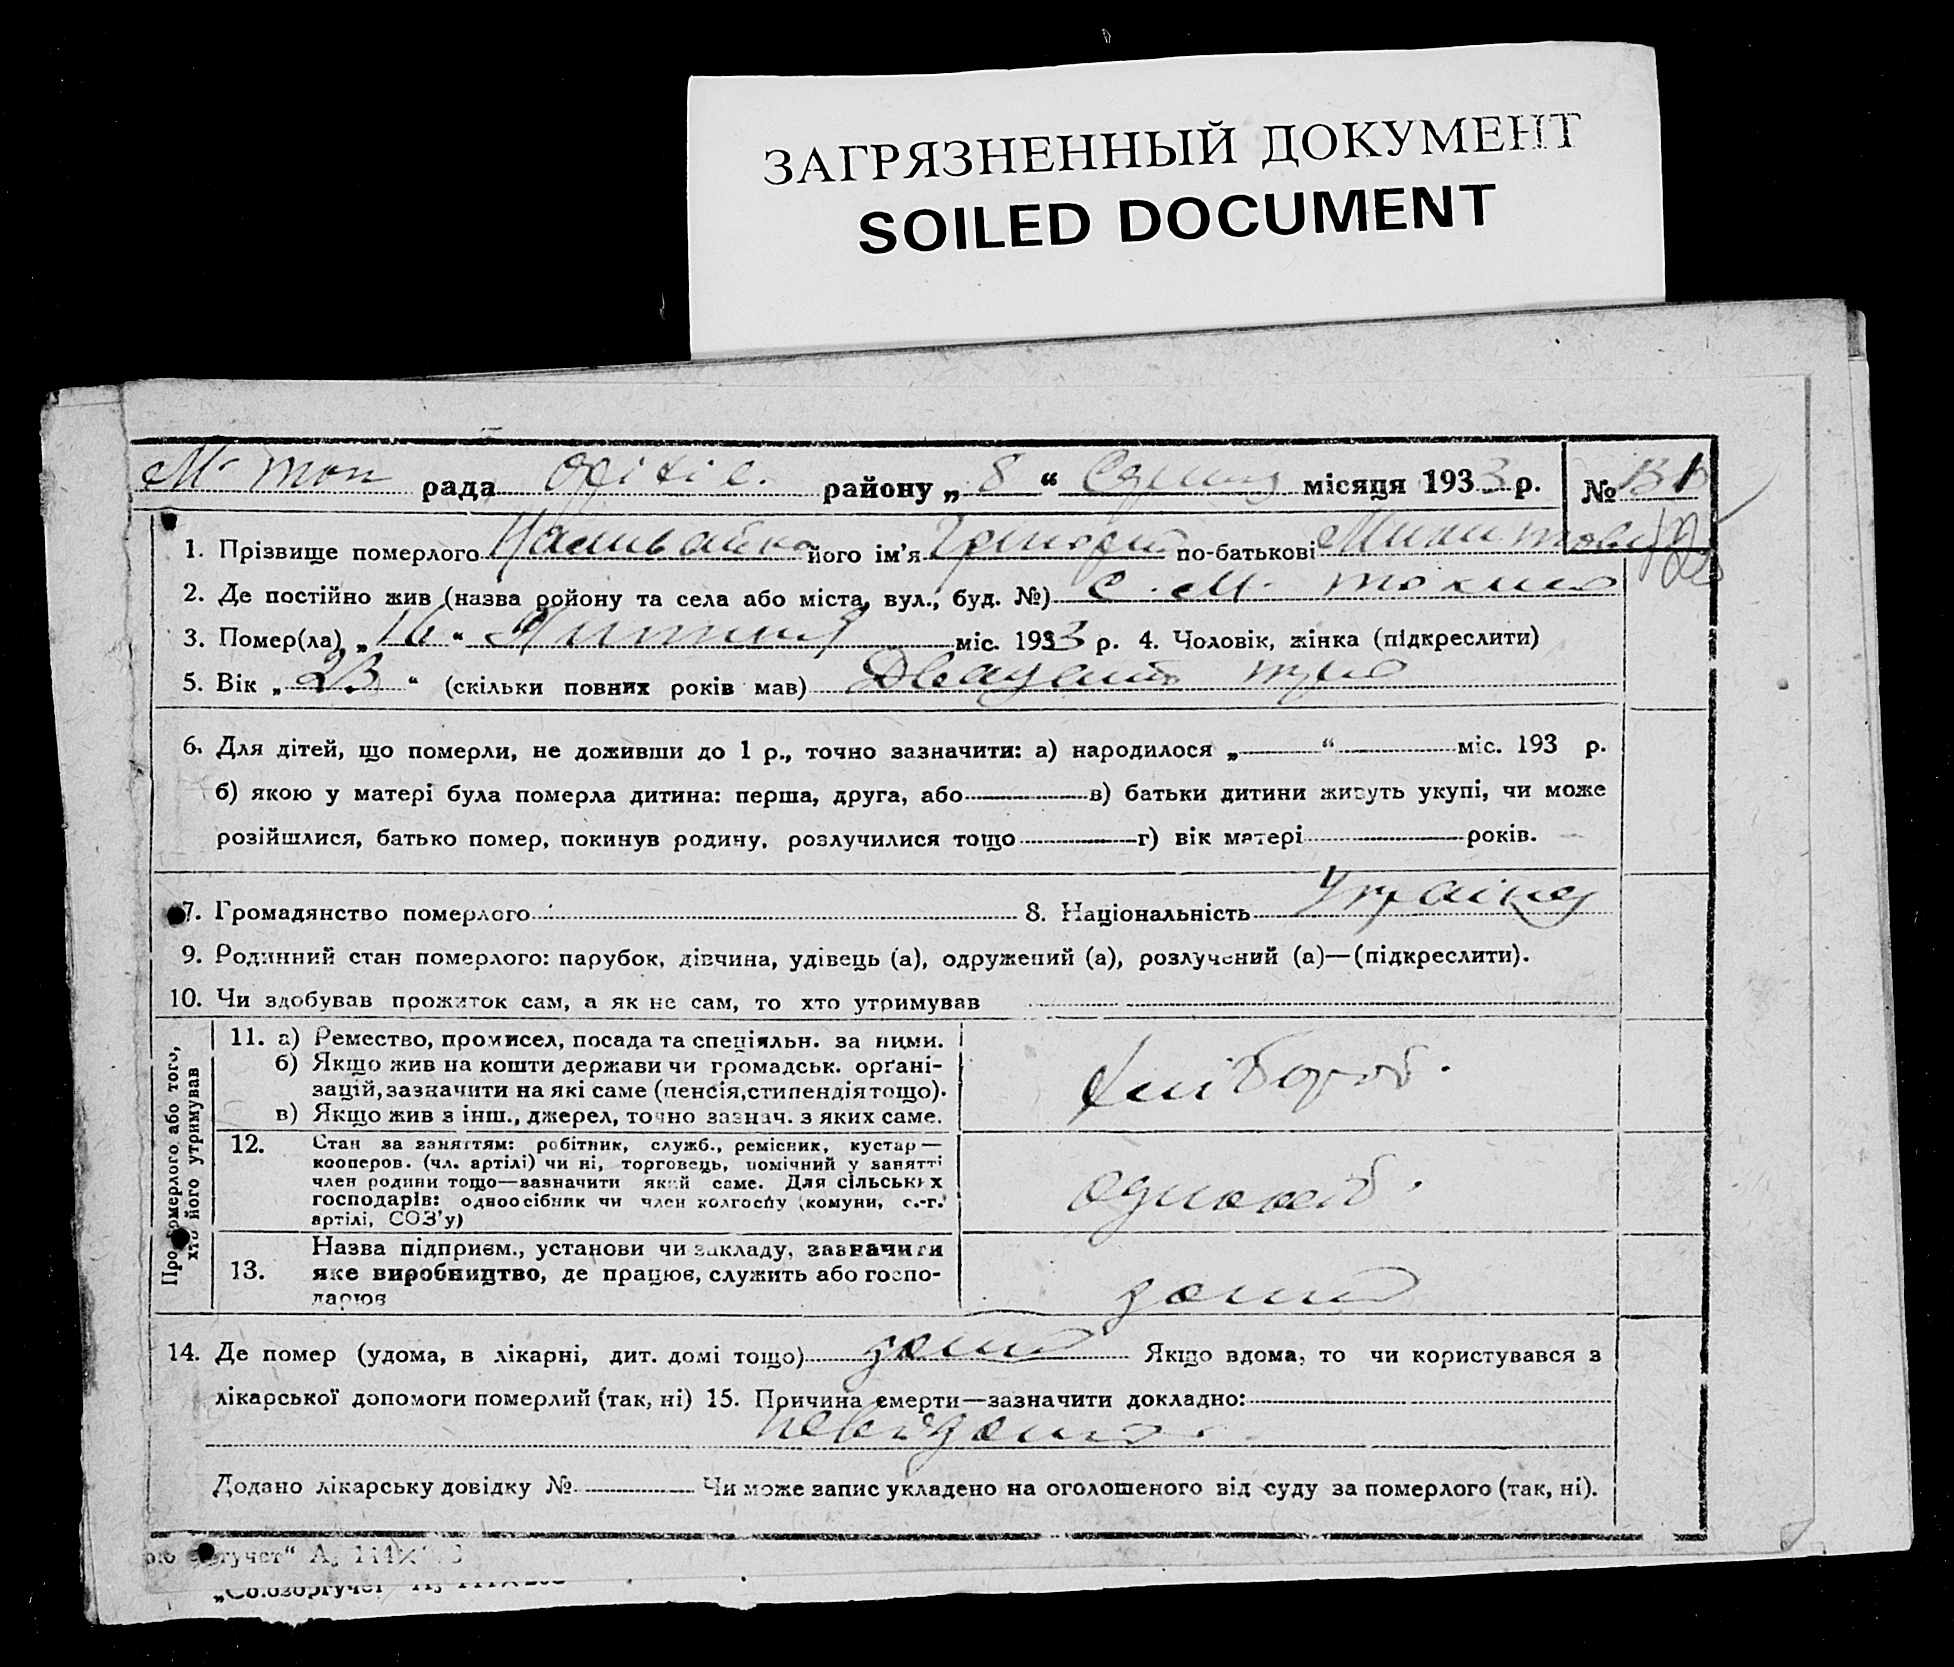 ЗАГРЯЗНЕННЫЙ ДОКУМЕНТ
SOILED DOCUMENT
рада району „ 8 “ місяця 1933 р. №
1. Прізвище померлого Наливайко його ім'я Григорий по-батькові Микитович
2. Де постійно жив (назва ройону та села або міста, вул., буд. №) С. М-
3. Помер(ла) „ 16 “ міс. 1933 р. 4. Чоловік, жінка (підкреслити)
5. Вік „ 23 “ (скільки повних років мав) Двацать три
6. Для дітей, що померли, не доживши до 1 р., точно зазначити: а) народилося „ “ міс. 193 р.
б) якою у матері була померла дитина: перша, друга, або в) батьки дитини живуть укупі, чи може
розійшлися, батько помер, покинув родину, розлучилися тощо г) вік матері років.
7. Громадянство померлого 8. Національність Україн
9. Родинний стан померлого: парубок, дівчина, удівець (а), одружений (а), розлучений (а)—(підкреслити).
10. Чи здобував прожиток сам, а як не сам, то хто утримував
Про померлого або того,
хто його утримував
11. а) Ремество, промисел, посада та спеціяльн. за ними.
б) Якщо жив на кошти держави чи громадськ. орґані-
зацій, зазначити на які саме (пенсія, стипендія тощо).
в) Якщо жив з інш., джерел, точно зазнач. з яких саме.
Хлібороб.
12. Стан за заняттям: робітник, служб., ремісник, кустар—
кооперов. (чл. артілі) чи ні, торговець, помічний у занятті
член родини тощо—зазначити який саме. Для сільських
господарів: одноосібник чи член колгоспу (комуни, с.-г.
артілі, СОЗ'у)
одноосіб.
13. Назва підприєм., установи чи закладу, зазначити
яке виробництво, де працює, служить або госпо-
дарює
дома
14. Де помер (удома, в лікарні, дит. домі тощо) дома Якщо вдома, то чи користувався з
лікарської допомоги померлий (так, ні) 15. Причина смерти—зазначити докладно:
невідомо
Додано лікарську довідку № Чи може запис укладено на оголошеного від суду за померлого (так, ні).
„Союзоргучет“